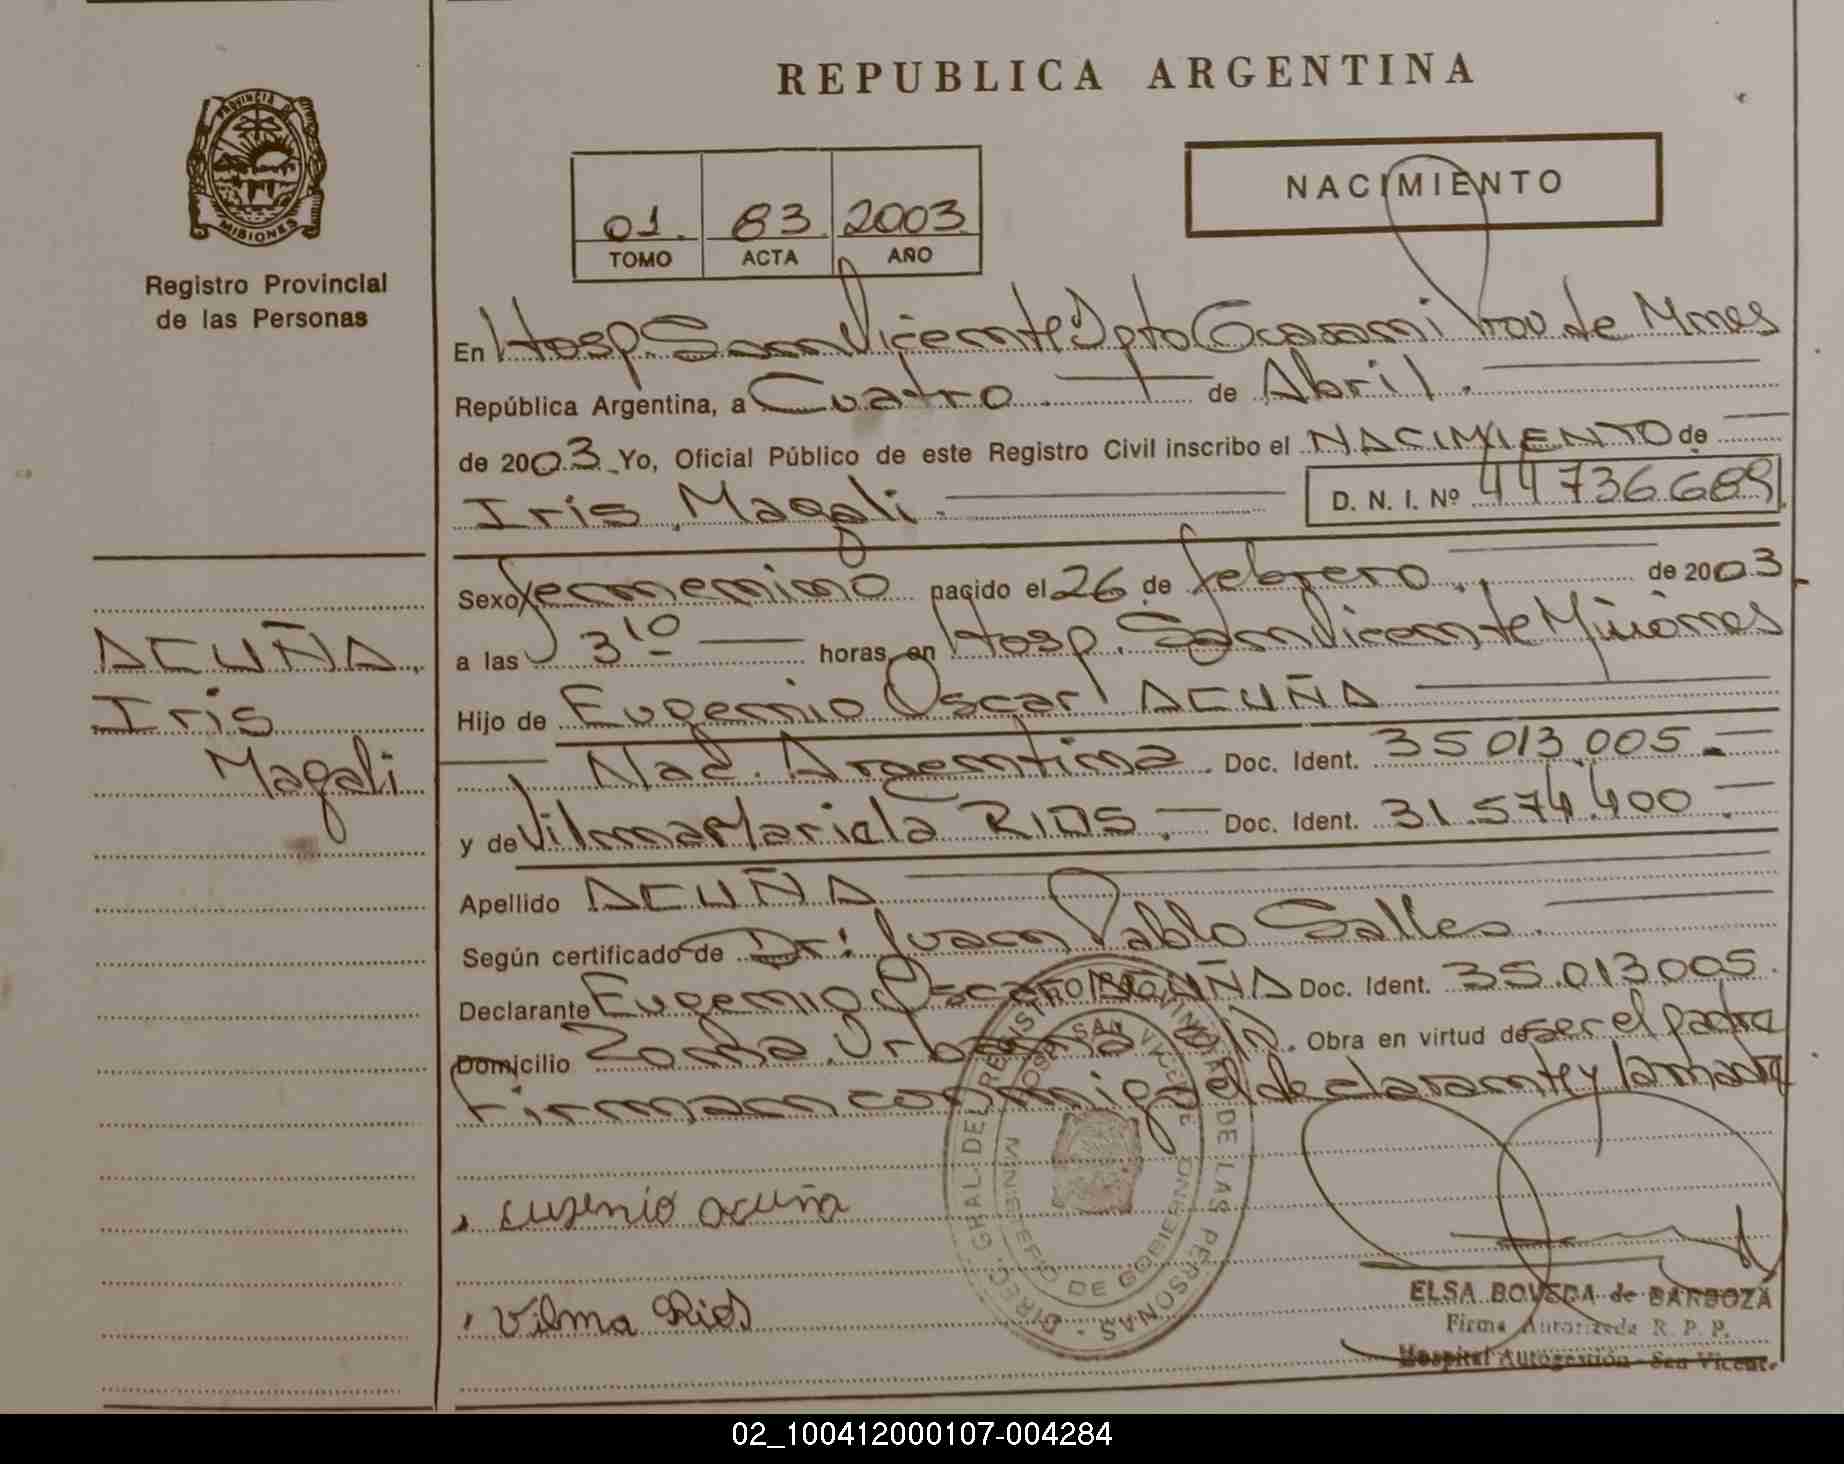 PROVINCIA D
MISIONES
Registro Provincial
de las Personas
REPUBLICA ARGENTINA
01. 83. 2003.
TOMO ACTA AÑO
NACIMIENTO
En Hosp. San Vicente Dpto Guarani Prov. de Mnes
República Argentina, a Cuatro de Abril.
de 2003. Yo, Oficial Público de este Registro Civil inscribo el NACIMIENTO de
Iris Magali. D. N. I. Nº 44736689
Sexo femenino nacido el 26 de febrero de 2003
a las 3 10 horas, en Hosp. San Vicente Misiones
Hijo de Eugenio Oscar ACUÑA
Nac. Argentina. Doc. Ident. 35 013.005.
y de Vilma Mariela RIOS. Doc. Ident. 31.574.400
Apellido ACUÑA
Según certificado de Dr: Juan Pablo Salles.
Declarante Eugenio Oscar ACUÑA Doc. Ident. 35.013.005.
Domicilio Zona Urbana S/N. Obra en virtud de ser el padre
Firman conmigo el declarante y la madre
ACUÑA,
Iris
Magali
eugenio acuña
Vilma Rios
DIREC. GRAL DEL REGISTRO PROVINCIAL DE LAS PERSONAS
HOSP. SAN VICENTE
MINISTERIO DE GOBIERNO
ELSA BOVEDA de BARBOZA
Firma Autorizada R. P. P.
Hospital Autogestión San Vicente
02_100412000107-004284